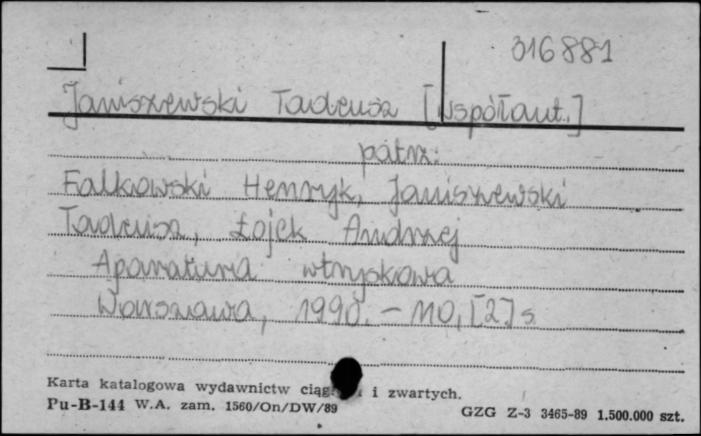 316881
Janiszewski Tadeusz [współaut.]
patrz:
Falkowski Henryk, Janiszewski
Tadeusz, Łojek Andrzej
Aparatura wtryskowa
Warszawa, 1990. - 110, [2] s
Karta katalogowa wydawnictw i zwartych.
Pu-B-144 W.A. zam. 1560/On/DW/89
GZG Z-3 3465-89 1.500.000 szt.